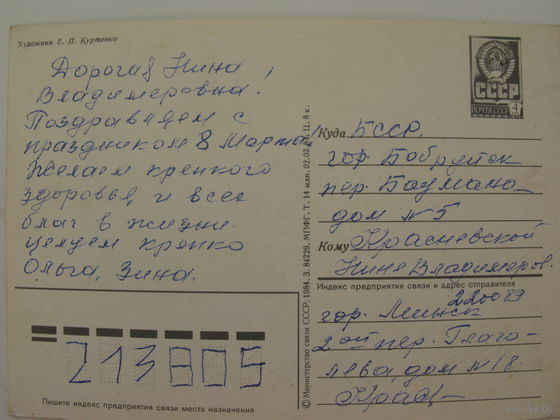 Художник Е. П. Куртенко
Дорогая Нина
Владимеровна.
Поздравляем с
праздником 8 Марта
желаем крепкого
здоровья, и всех
благ в жизни.
целуем крепко
Ольга, Зина.
213805
Пишите индекс предприятия связи места назначения
© Министерство связи СССР, 1984. З. 84229. МПФГ, Т. 14 млн. 02.03. Ц. 8 к.
СССР
ПОЧТА СССР
4
Куда БССР.
гор. Бобруйск
пер. Баумана
дом №5
Кому Красневской
Нине Владимеров.
Индекс предприятия связи и адрес отправителя
220089
гор. Минск
2ой пер. Глаго-
лева, дом №18.